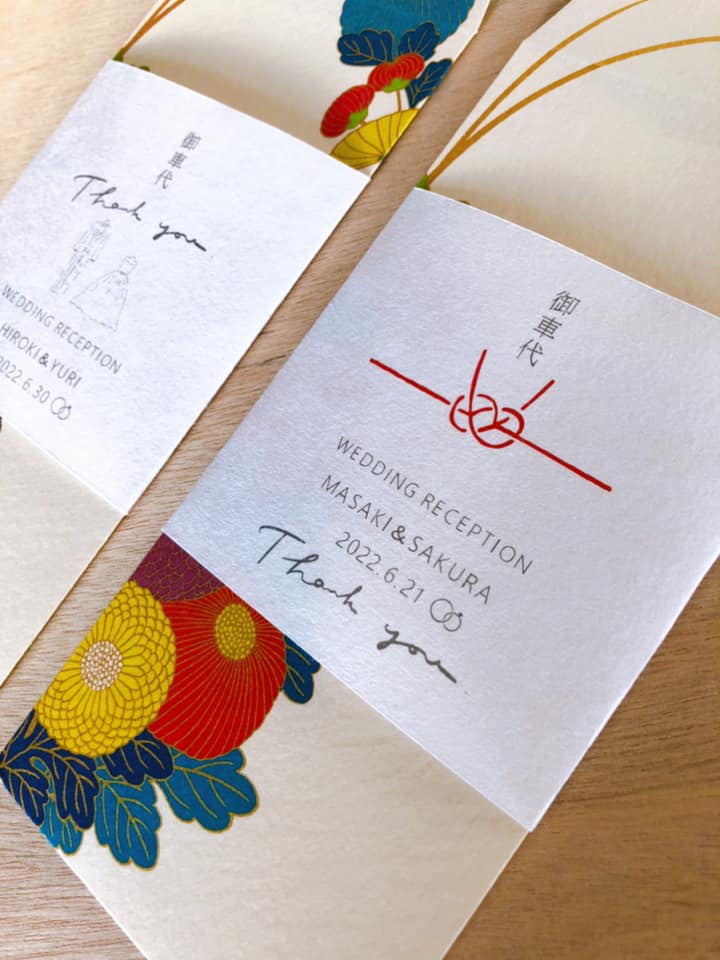 御車代
Thank you
WEDDING RECEPTION
HIROKI & YURI
2022.6.30
御車代
WEDDING RECEPTION
MASAKI & SAKURA
2022.6.21
Thank you